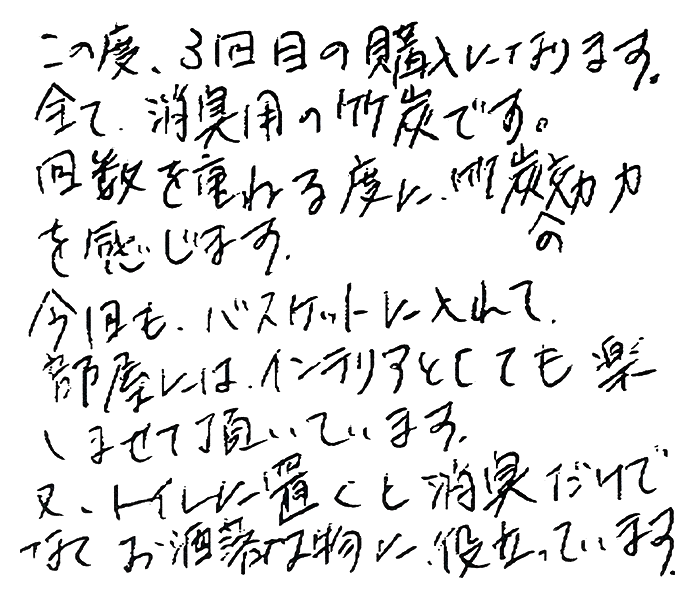 この度、3回目の購入になります。
全て、消臭用の竹炭です。
回数を重ねる度に、竹炭の効力
を感じます。
今回も、バスケットに入れて、
部屋には、インテリアとしても楽
しませて頂いています。
又、トイレに置くと消臭だけで
なくお洒落な物に、役立っています。